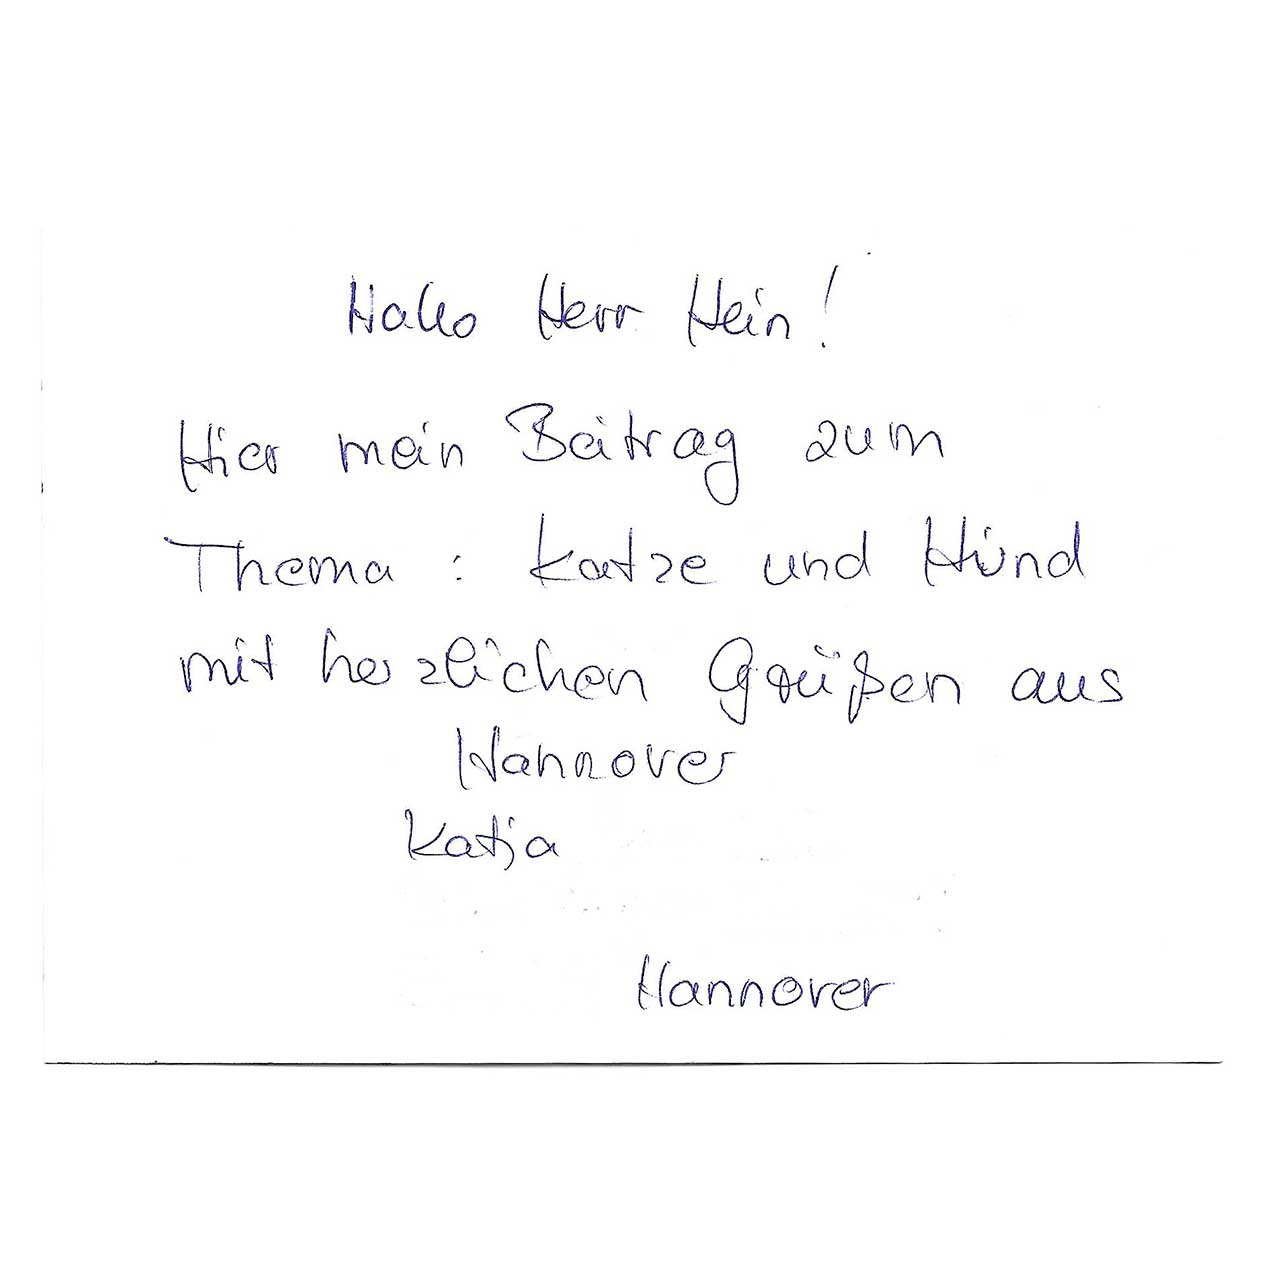 Hallo Herr Hein!
Hier mein Beitrag zum
Thema : Katze und Hund
mit herzlichen Grüßen aus
Hannover
Katja
Hannover